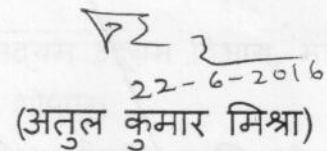 22-6-2016
(अतुल कुमार मिश्रा)